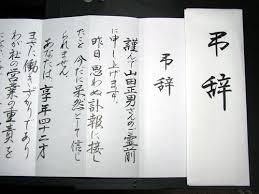 弔辞
弔辞
謹んで山田正男さんのご霊前
に申し上げます。
昨日、思わぬ訃報に接し
、今だに呆然として信じ
られません。
あなたは、享年四十二才
まだまだ働きざかりであり
わが社の営業の重責を